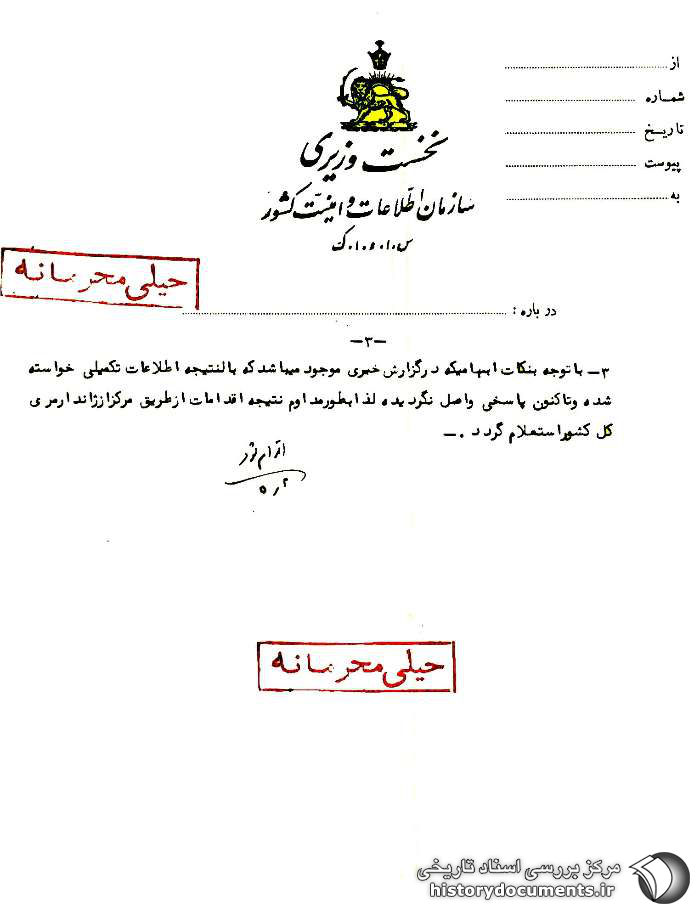 از
شماره
تاریخ
پیوست
به
نخست وزیری
سازمان اطلاعات و امنیت کشور
س.ا.و.ا.ک
خیلی محرمانه
درباره :
-۳-
۳- باتوجه بنکات ابهامیکه درگزارش خبری موجود میباشد که بالنتیجه اطلاعات تکمیلی خواسته
شده وتاکنون پاسخی واصل نگردیده لذا بطورمداوم نتیجه اقدامات ازطریق مرکزاژاندارمری
کل کشوراستعلام گردد .-
اقدام شد
خیلی محرمانه
مرکز بررسی اسناد تاریخی
historydocuments.ir